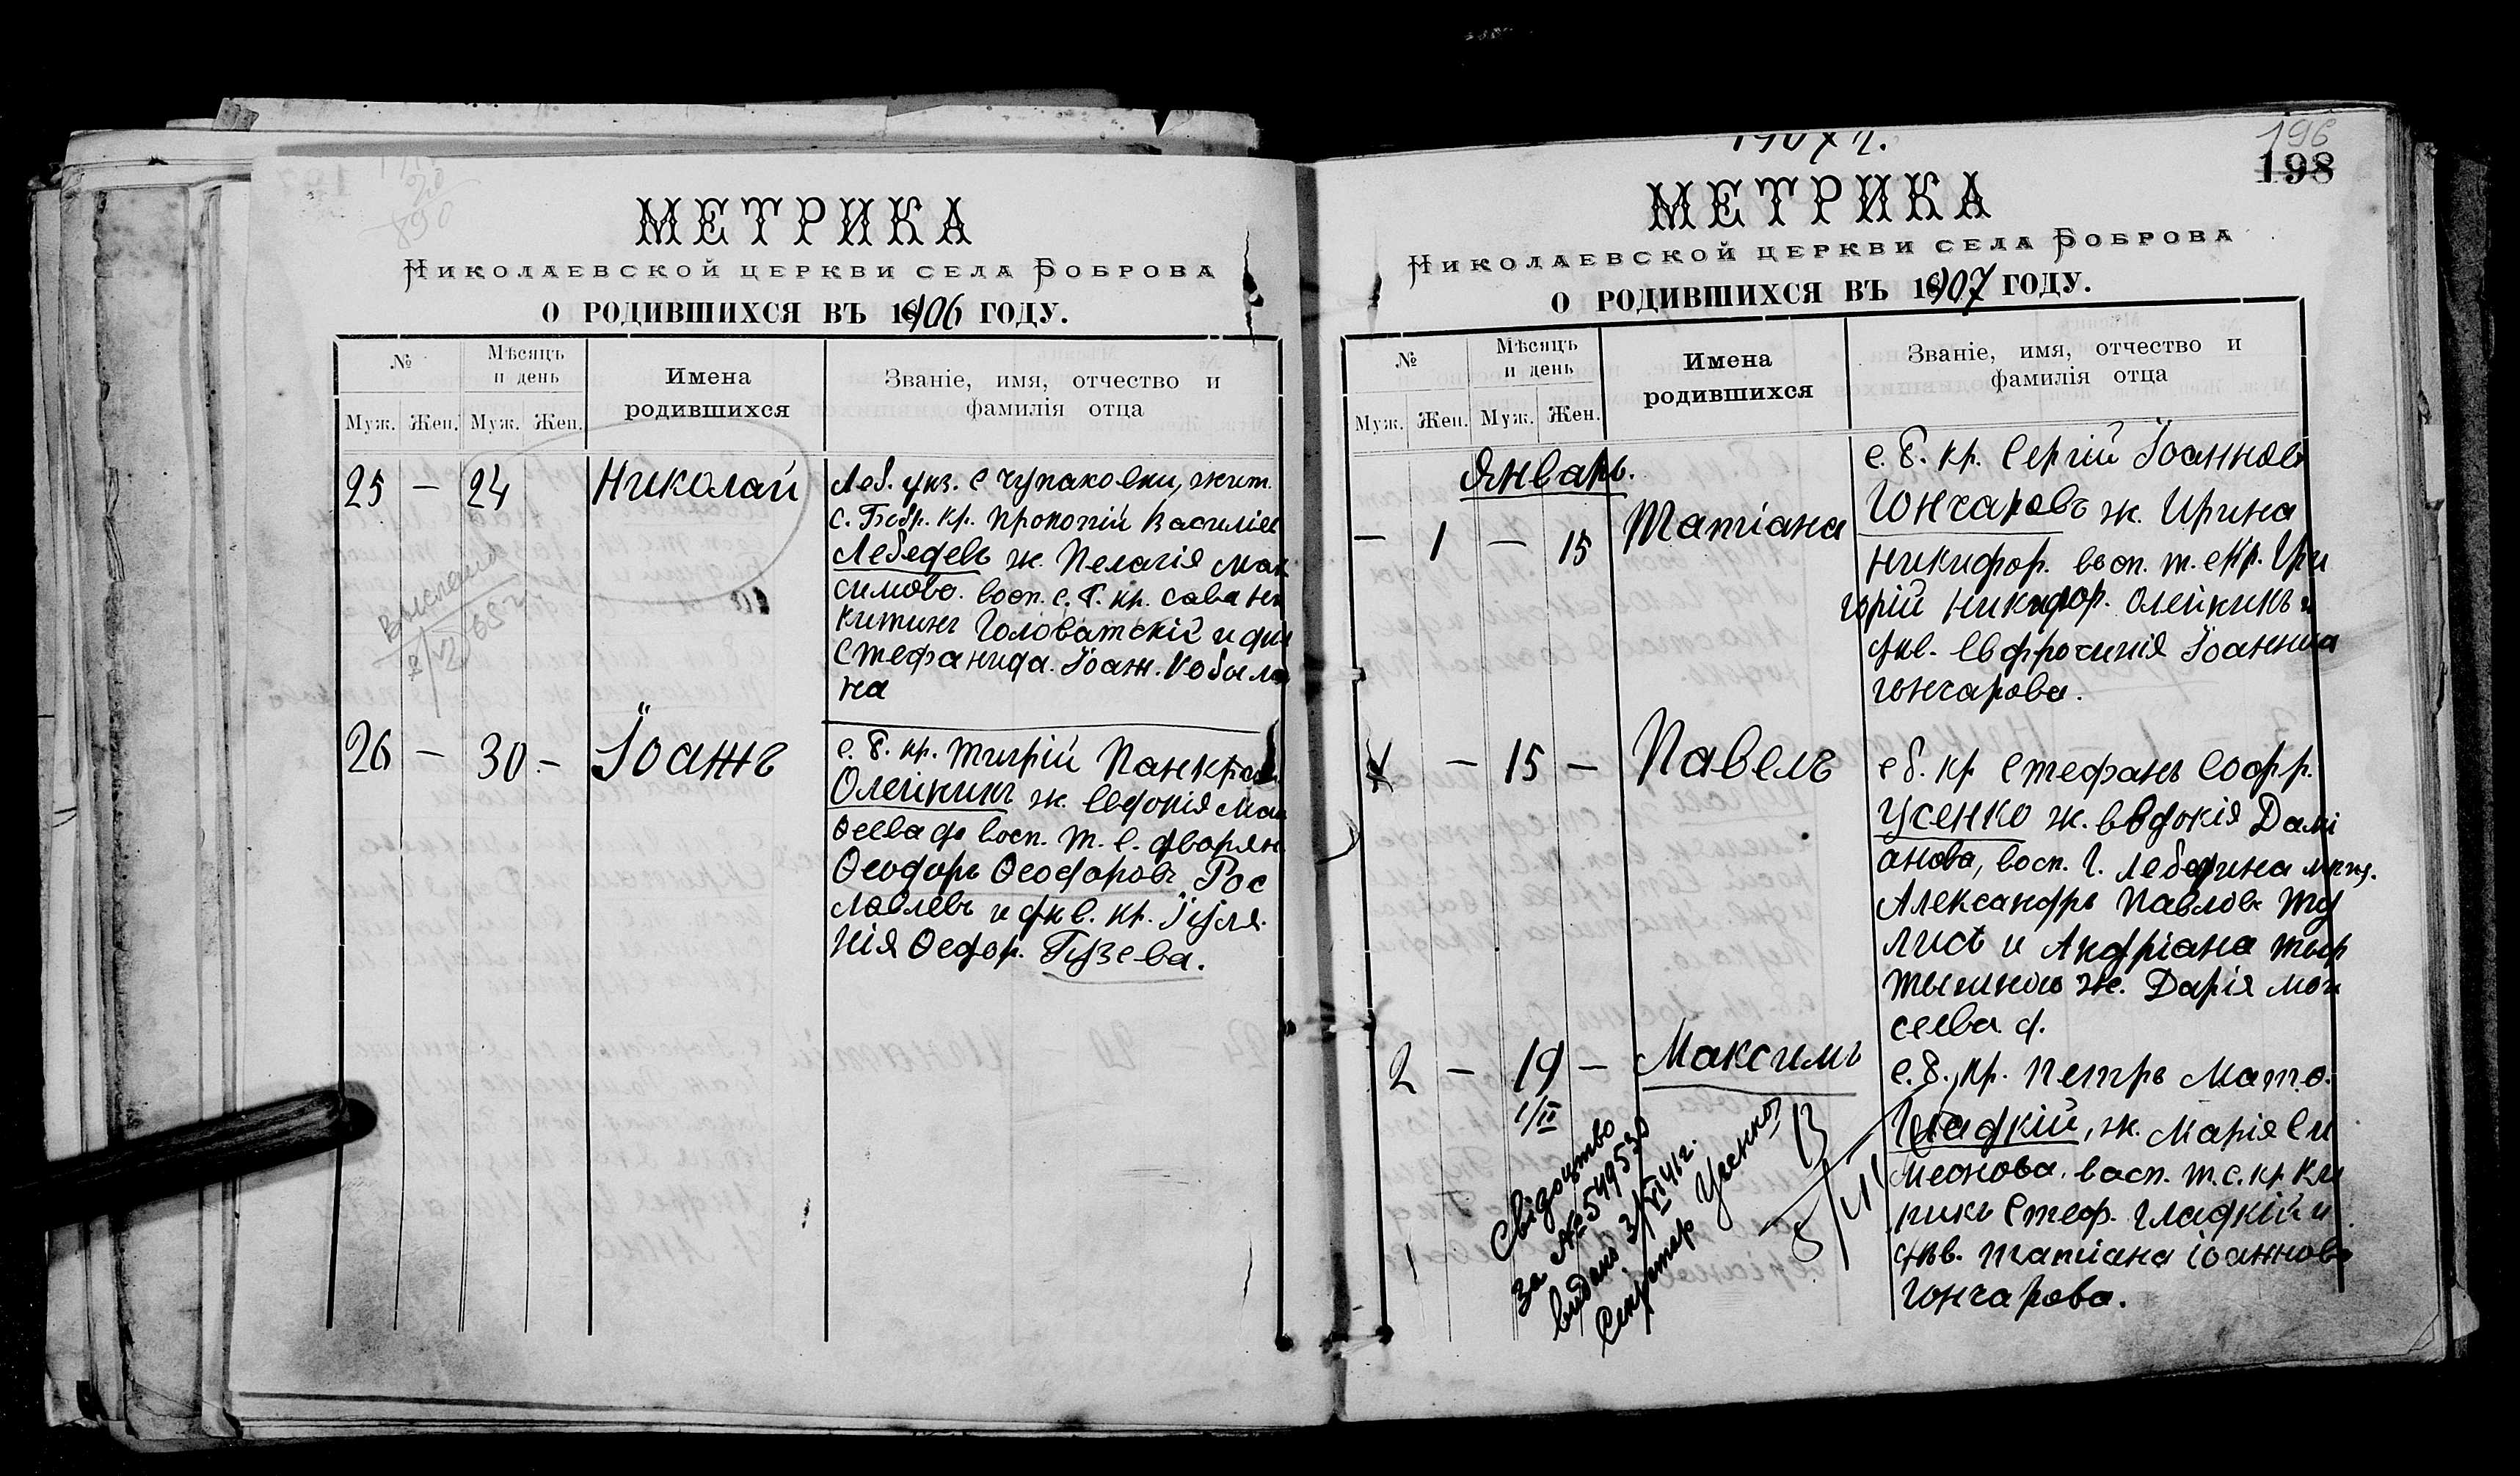 МЕТРИКА
Николаевской церкви села Боброва
О РОДИВШИХСЯ ВЪ 1906 ГОДУ.
№
Мѣсяцъ и день
Имена родившихся
Званіе, имя, отчество и фамилія отца
Муж. Жен. Муж. Жен.
25 — 24 Николай
Леб. уѣз. с Чупаховки, жит.
с. Бобр. кр. Прокопій Василіев
Лебедевъ ж. Пелагія Мак
симова. восп. с. Б. кр. Сава Ни
китинъ Головатскій и
Стефанида Іоан. Кобыля
ка
26 — 30 — Іоаннъ
с. Б. кр. Панкрат
Олейникъ ж. Евдокія
восп. т. с. дворян
Ѳеодоръ Ѳеодоровъ Рос
лавлевъ и дѣв. кр. Іулія
нія Ѳедор. Гузева.
1907 г.
196
198
МЕТРИКА
Николаевской церкви села Боброва
О РОДИВШИХСЯ ВЪ 1907 ГОДУ.
№
Мѣсяцъ и день
Имена родившихся
Званіе, имя, отчество и фамилія отца
Муж. Жен. Муж. Жен.
Январь.
— 1 — 15 Татіана
с. Б. кр. Сергій Іоаннов
Гончаровъ ж. Ирина
Никифор. восп. т. с. кр. Гри
горій Никифор. Олейникъ и
дѣв. Евфросинія Іоаннова
Гончарова.
1 — 15 — Павелъ
с Б. кр Стефанъ Софр.
Усенко ж. Евдокія Дамі
анова, восп. г. Лебедина мѣщ.
Александръ Павловъ
и Андріана
ж. Дарія Мои
сеева
2 — 19 — Максимъ
1/II
с. Б. кр. Петръ Матѳ.
Гладкій, ж. Марія Си
меонова. восп. т. с. кр Ки
рикъ Стеф. Гладкій и
дѣв. Татіана Іоаннова
Гончарова.
Свідоцтво
за № 549530
видано 3/VI 41 г.
Секретар Усенко